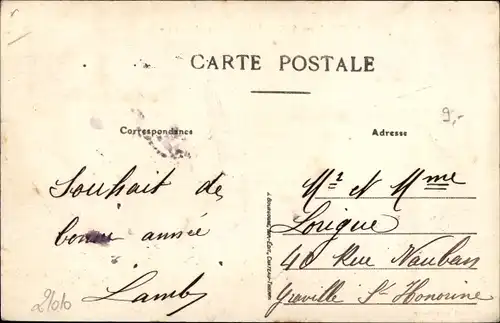 CARTE POSTALE
9,-
Correspondance
Adresse
Souhait de
bonne année
Lamb
Mr et Mme
Lorigue
40 Rue Nauban
Graville Ste Honorine